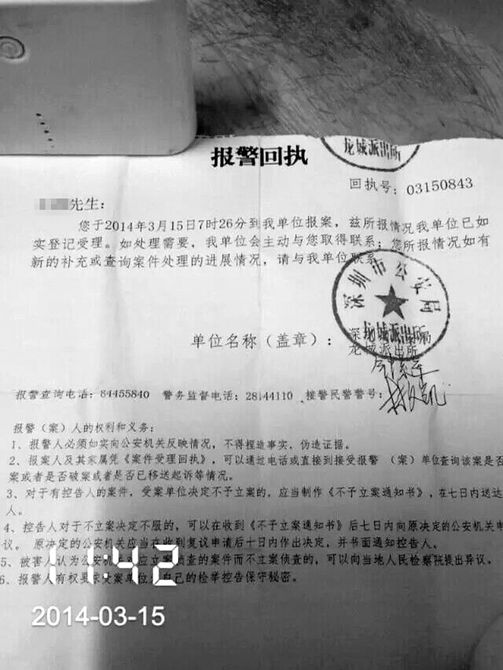 龙城派出所
报警回执
回执号：03150843
先生：
您于2014年3月15日7时26分到我单位报案，兹所报情况我单位已如
实登记受理。如处理需要，我单位会主动与您取得联系；您所报情况如有
新的补充或查询案件处理的进展情况，请与我单位联系。
深圳市公安局
龙城派出所
单位名称（盖章）：
龙城派出所
报警查询电话：84455840 警务监督电话：28144110 接警民警警号：
报警（案）人的权利和义务：
1、报警人必须如实向公安机关反映情况，不得捏造事实、伪造证据。
2、报案人及其家属凭《案件受理回执》，可以通过电话或直接到接受报警（案）单位查询该案是否
案或者是否破案或者是否已移送起诉等情况。
3、对于有控告人的案件，受案单位决定不予立案的，应当制作《不予立案通知书》，在七日内送达
人。
4、控告人对于不立案决定不服的，可以在收到《不予立案通知书》后七日内向原决定的公安机关申
议。 原决定的公安机关应当在收到复议申请后十日内作出决定，并书面通知控告人。
5、被害人认为公安机关应立案侦查的案件而不立案侦查的，可以向当地人民检察院提出异议。
6、报警人有权要求受案单位为自己的检举控告保守秘密。
11:42
2014-03-15